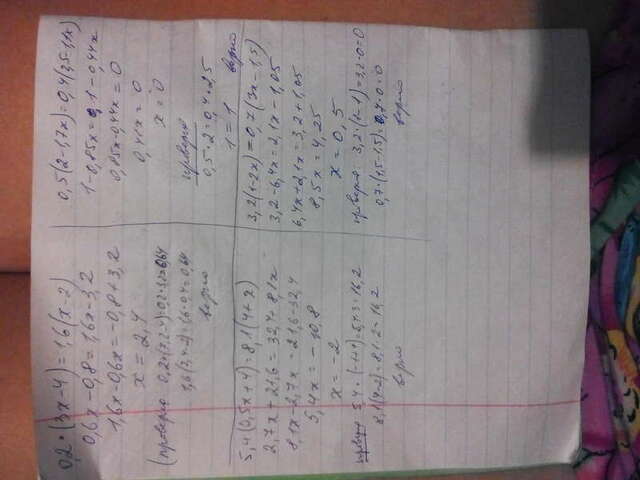 0,2·(3x-4)=1,6(x-2)
0,6x-0,8=1,6x-3,2
1,6x-0,6x=-0,8+3,2
x=2,4
(проверка
1,6(2,4-2)=1,6·0,4=0,64
верно
0,5(2-1,7x)=0,4(2,5-1,1x)
1-0,85x=0,1-0,44x
0,85x-0,44x=0
0,41x=0
x=0
проверка
0,5·2=0,4·2,5
1=1 верно
5,4(0,5x+4)=8,1(4+x)
2,7x+21,6=32,4+8,1x
8,1x-2,7x=21,6-32,4
5,4x=-10,8
x=-2
проверка 5,4·(-1+4)=5,4·3=16,2
8,1(4-2)=8,1·2=16,2
верно
3,2(1-2x)=0,7(3x-1,5)
3,2-6,4x=2,1x-1,05
6,4x+2,1x=3,2+1,05
8,5x=4,25
x=0,5
проверка 3,2·(1-1)=3,2·0=0
0,7·(1,5-1,5)=0,7·0=0
верно